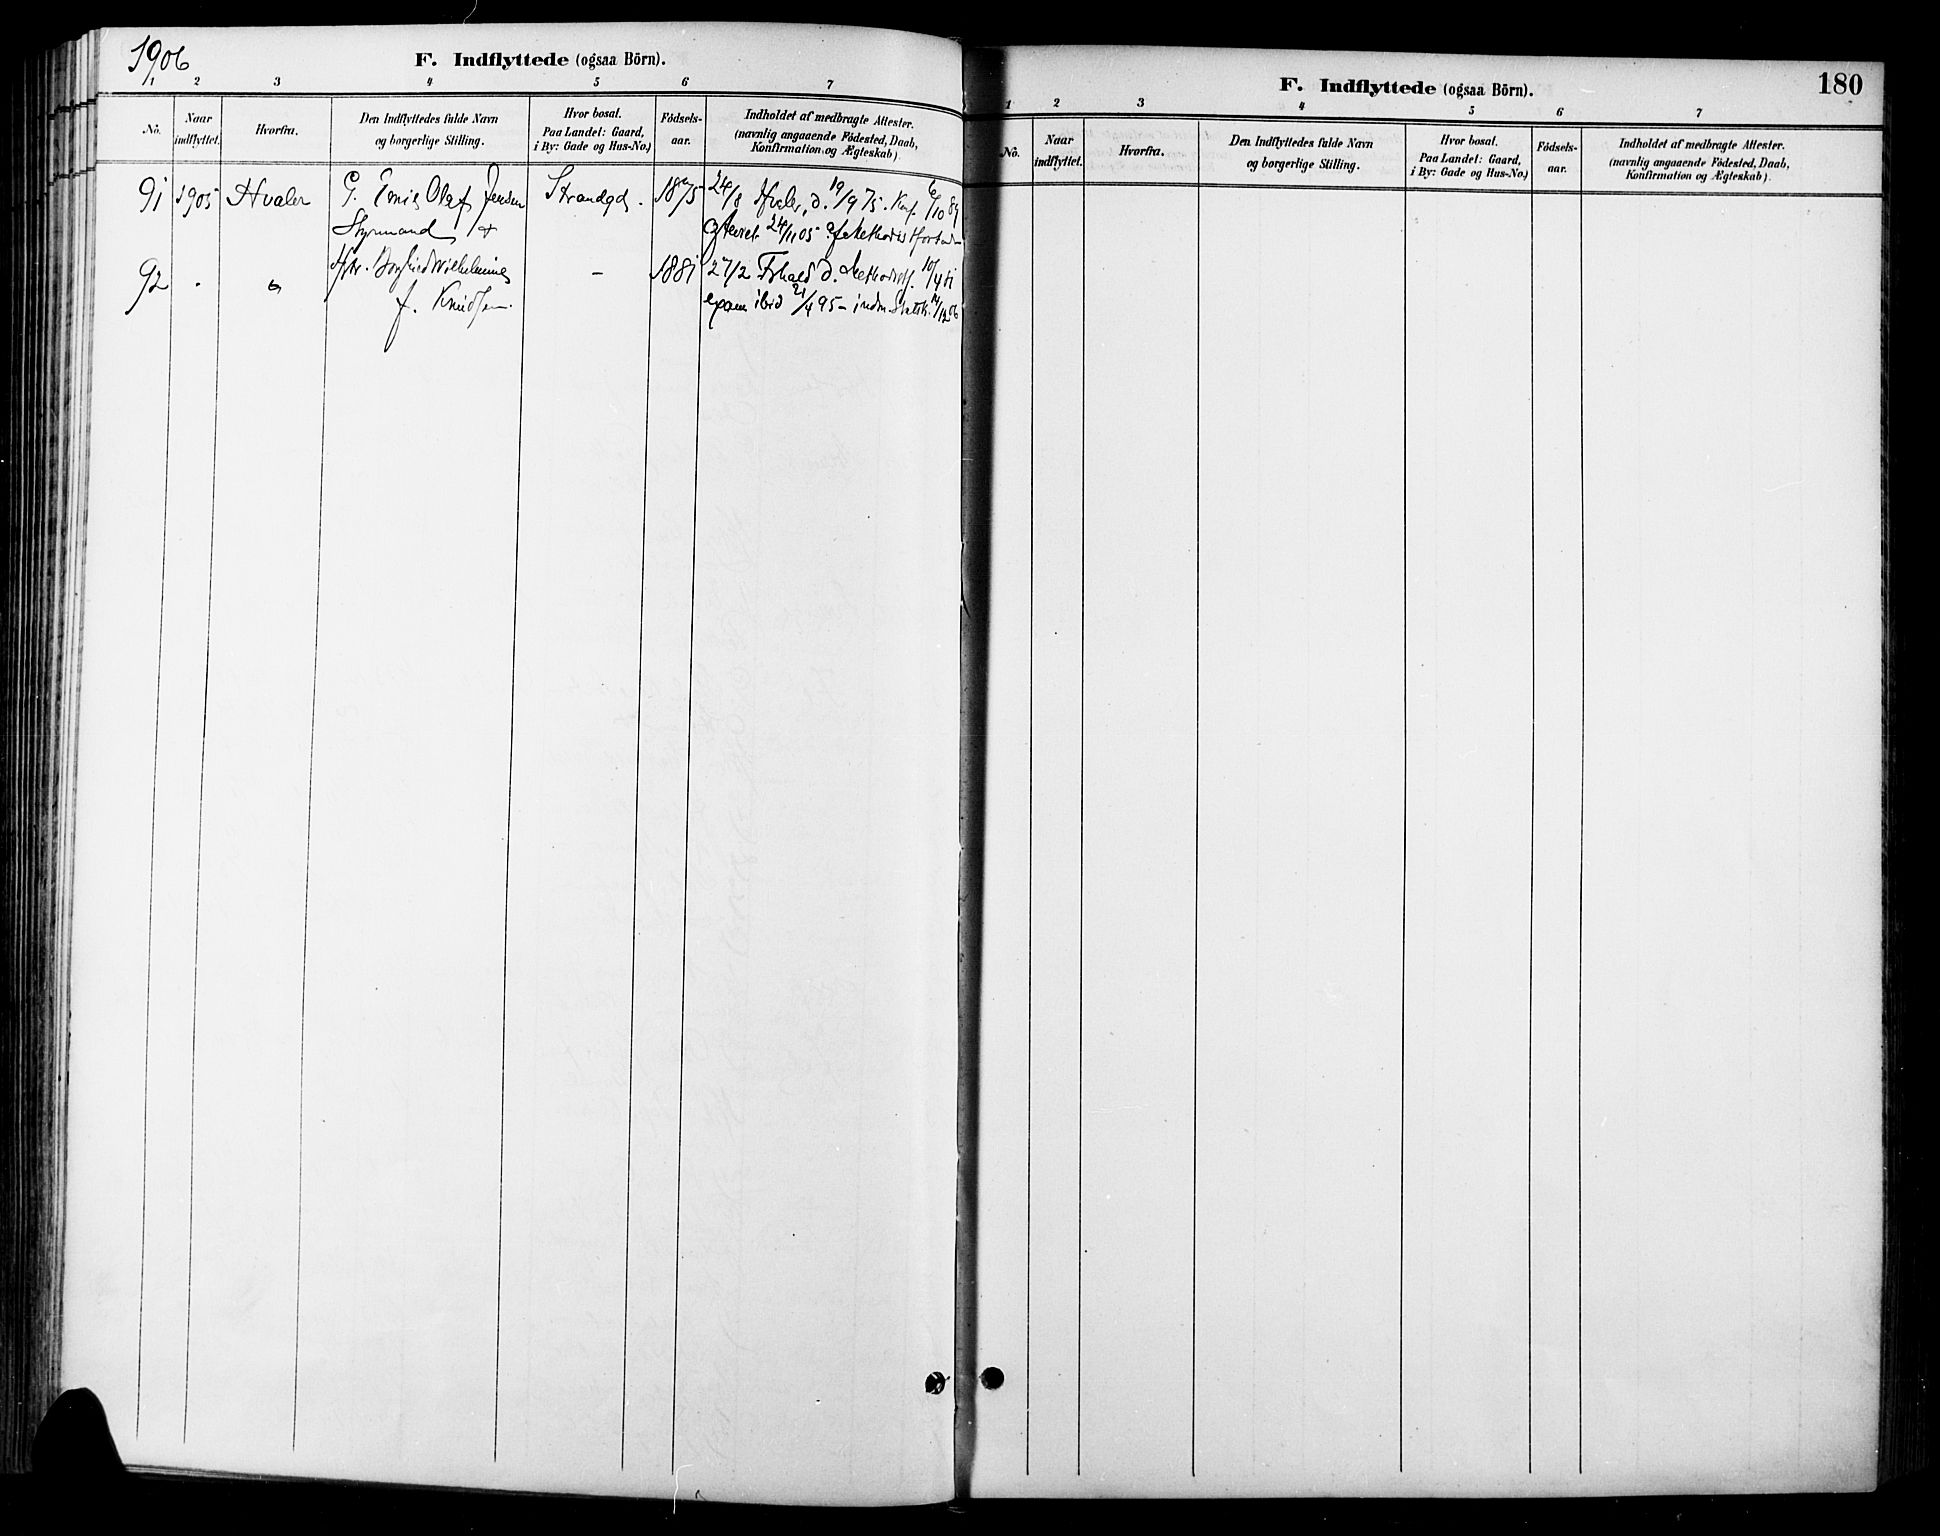 1906
F. Indflyttede (ogsaa Börn).
1 2 3 4 5 6 7
No. Naar indflyttet. Hvorfra. Den Indflyttedes fulde Navn og borgerlige Stilling. Hvor bosat. Paa Landet: Gaard, i By: Gade og Hus-No.) Födsels-aar. Indholdet af medbragte Attester. (navnlig angaaende Födested, Daab, Konfirmation og Ægteskab)
91 1905 Hvaler G. Emil Olaf Jensen Strandgd. 1875 24/8 Hvaler, d. 19/9 75. Konf. 6/10 89
Styrmand + 24/11 05
92 . Hstr. Wilhelmine – 1881 27/2 d. 10/4 81
f. Knudsen ibid 21/4 95 – indm. Statsk. 12 06
F. Indflyttede (ogsaa Börn).
180
1 2 3 4 5 6 7
No. Naar indflyttet. Hvorfra. Den Indflyttedes fulde Navn og borgerlige Stilling. Hvor bosat. Paa Landet: Gaard, i By: Gade og Hus-No.) Födsels-aar. Indholdet af medbragte Attester. (navnlig angaaende Födested, Daab, Konfirmation og Ægteskab).